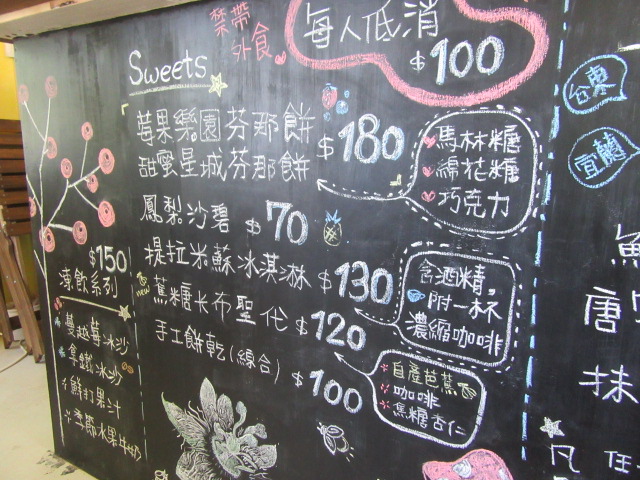 禁帶
外食
每人低消
$100
Sweets
莓果樂園芬那餅
甜蜜星城芬那餅
$180
馬林糖
綿花糖
巧克力
鳳梨沙碧 $70
提拉米蘇冰淇淋 $130
含酒精,
附一杯
濃縮咖啡
NEW
蕉糖卡布聖代 $120
手工餅乾(綜合) $100
自產芭蕉
咖啡
焦糖杏仁
$150
凍飲系列
蔓越莓冰沙
拿鐵冰沙
鮮打果汁
季節水果牛奶
台東
宜蘭
唐
抹
凡